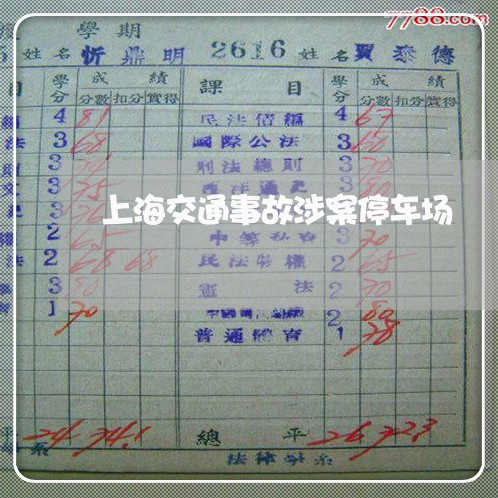 7788.com
學期
姓名 忻鼎明 2616 姓名 賈泰德
目 學分 成績 課目 學分 成績
分數 扣分 實得 分數 扣分 實得
4 81 民法債編 4 67
法 3 68 國際公法 3 60
3 刑法總則 3 70
3 75 3 80
上海交通事故涉案停车场
2 65 3 70
法 2 68 68 民法物權 2 65
3 80 憲法 2 70
1 70 2 80
普通體育 1 78
平 24 74.1 總平 26 72.3
系 法律學系